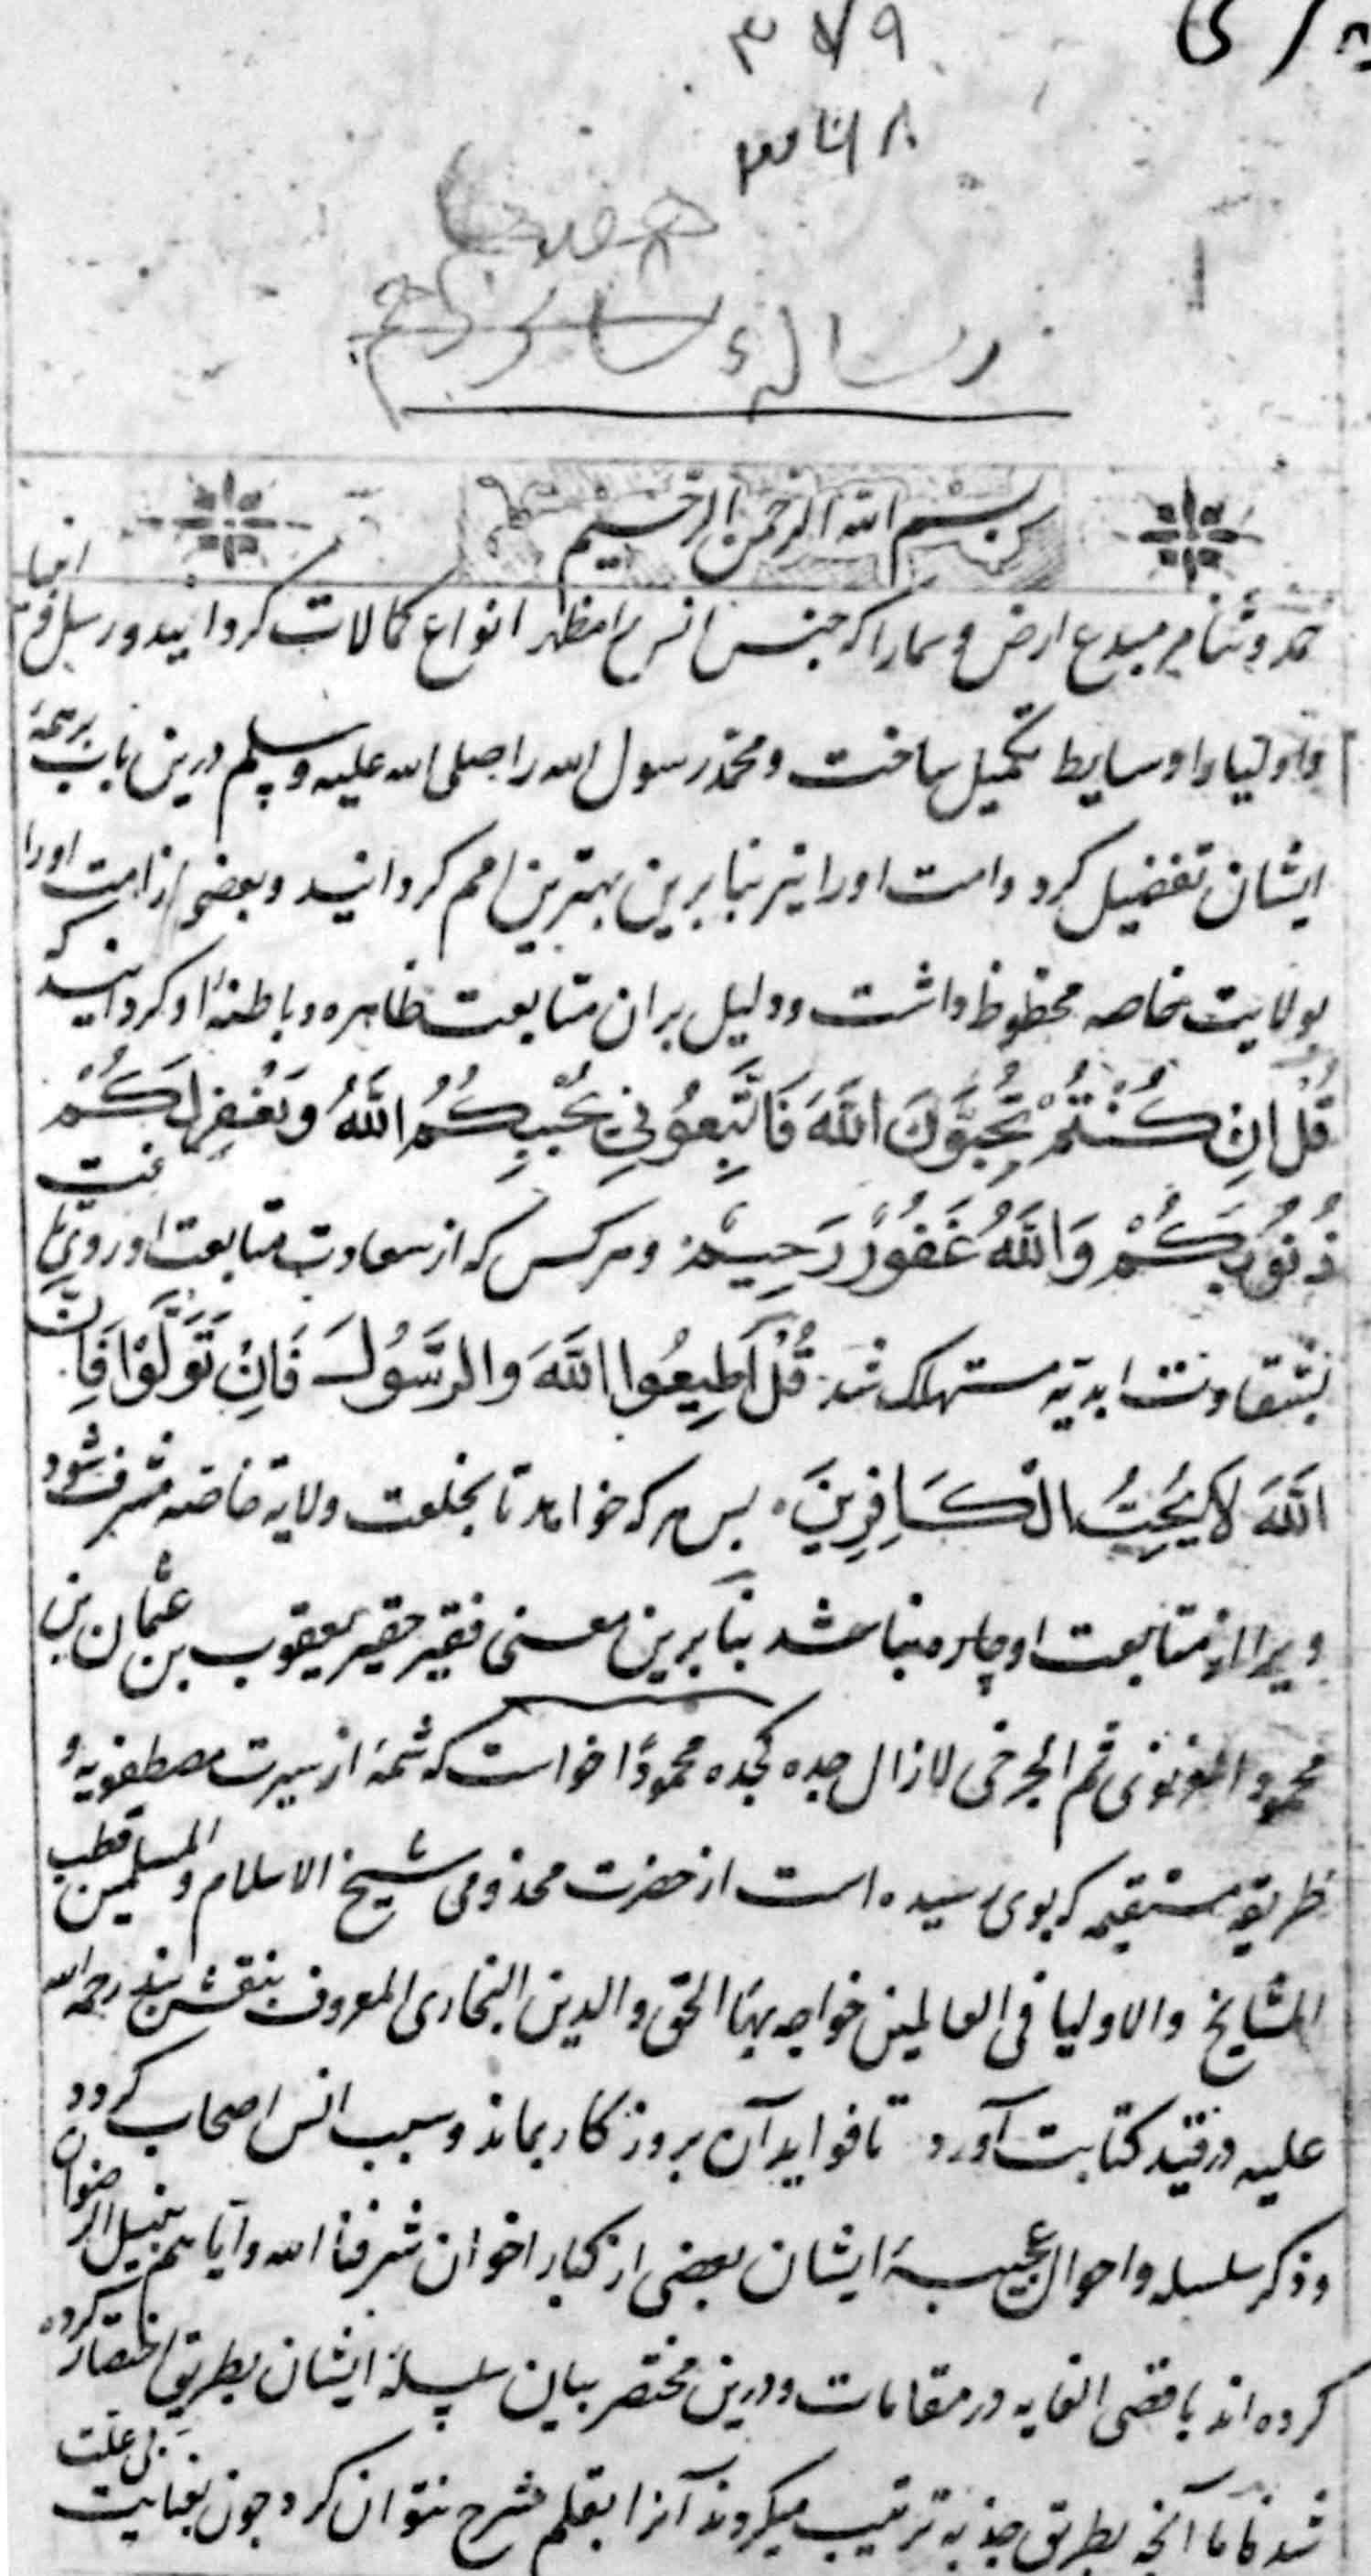 بسم الله الرحمن الرحيم
حمد و ثنا مر مبدع ارض و سما را که جنس انس را مظهر انواع کمالات کردانید و رسل و انبیا
و اولیا را وسایط تکمیل ساخت و محمد رسول الله را صلی الله علیه و سلم درین باب بر همه
ایشان تفضیل کرد و امت او را نیز بنابرین بهترین امم کردانید و بعضی از امت او را
بولایت خاصه محظوظ داشت و دلیل بر ان متابعت ظاهره و باطنهٔ او کردانید که
قُلْ اِنْ كُنْتُمْ تُحِبُّونَ اللَّهَ فَاتَّبِعُونِي يُحْبِبْكُمُ اللَّهُ وَيَغْفِرْ لَكُمْ
ذُنُوبَكُمْ وَاللَّهُ غَفُورٌ رَحِيمٌ و هرکس که از سعادت متابعت او روی تافت
بشقاوت ابدیه مستهلک شد قُلْ أَطِيعُوا اللَّهَ وَالرَّسُولَ فَاِنْ تَوَلَّوْا فَاِنَّ
اللَّهَ لَا يُحِبُّ الْكَافِرِينَ پس هر که خواهد تا بخلعت ولایة خاصه مشرف شود
ویرا از متابعت او چاره نباشد بنابرین معنی فقیر حقیر یعقوب بن عثمان بن
محمود الغزنوی ثم الجرخی لازال جده کجده محمودًا خواست که شمهٔ از سیرت مصطفویه و
طریقه مستقیمه که بوی رسیده است از حضرت مخدومی شیخ الاسلام و المسلمین قطب
المشایخ والاولیا فی العالمین خواجه بهاء الحق والدین البخاری المعروف بنقشبند رحمه الله
علیه در قید کتابت آورد تا فواید آن بروزکار بماند و سبب انس اصحاب کردد
و ذکر سلسله و احوال عجیبهٔ ایشان بعضی از کبار اخوان شرفنا الله و ایاهم بنیل الرضوان
کرده اند باقصی الغایه در مقامات و درین مختصر بیان سلسلهٔ ایشان بطریق اختصار کرده
شد فاما آنچه بطریق جذبه تربیت میکردند آنرا بقلم شرح نتوان کرد جون بعنایت بی علت